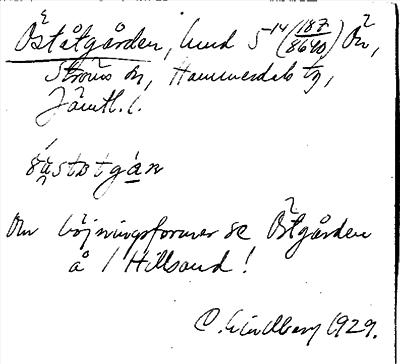 Öståtgården, hmd 5-14 (187/8640) Ön,
Ströms sn, Hammerdals tg,
Jämtl. l.
östotgan
Om böjningsformer se Östgården
å / Hillsand!
O. Lindberg 1929.